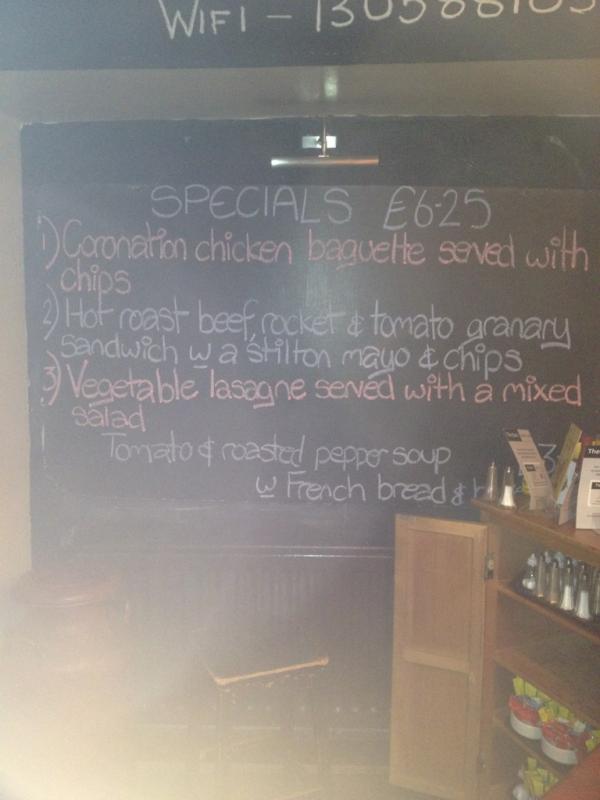 WIFI - 
SPECIALS £6-25
1) Coronation chicken baguette served with
chips
2) Hot roast beef, rocket & tomato granary
sandwich w a stilton mayo & chips
3) Vegetable lasagne served with a mixed
salad
Tomato & roasted pepper soup
w French bread &